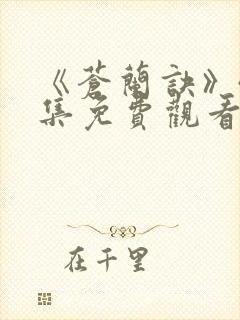 《蒼蘭訣》
集免費觀看
在千里